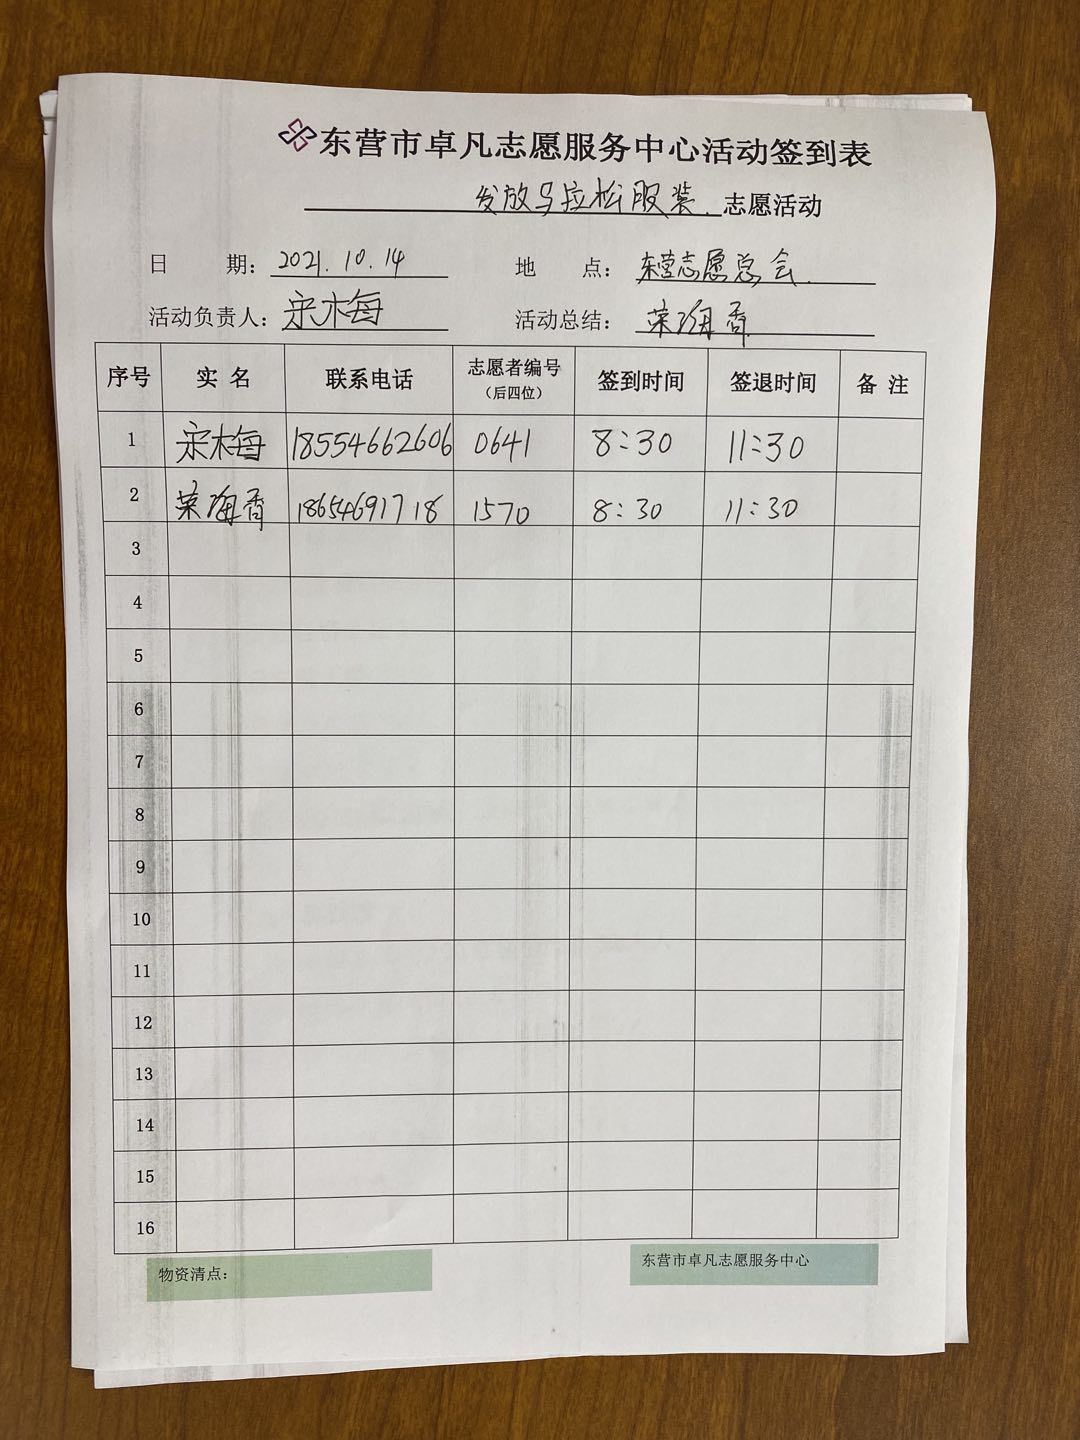 东营市卓凡志愿服务中心活动签到表
发放马拉松服装. 志愿活动
日 期: 2021.10.14 地 点: 东营志愿总会.
活动负责人: 宋木梅 活动总结: 荣海香
序号 实名 联系电话 志愿者编号(后四位) 签到时间 签退时间 备注
1 宋木梅 18554662606 0641 8:30 11:30
2 荣海香 18654691718 1570 8:30 11:30
3
4
5
6
7
8
9
10
11
12
13
14
15
16
物资清点: 东营市卓凡志愿服务中心